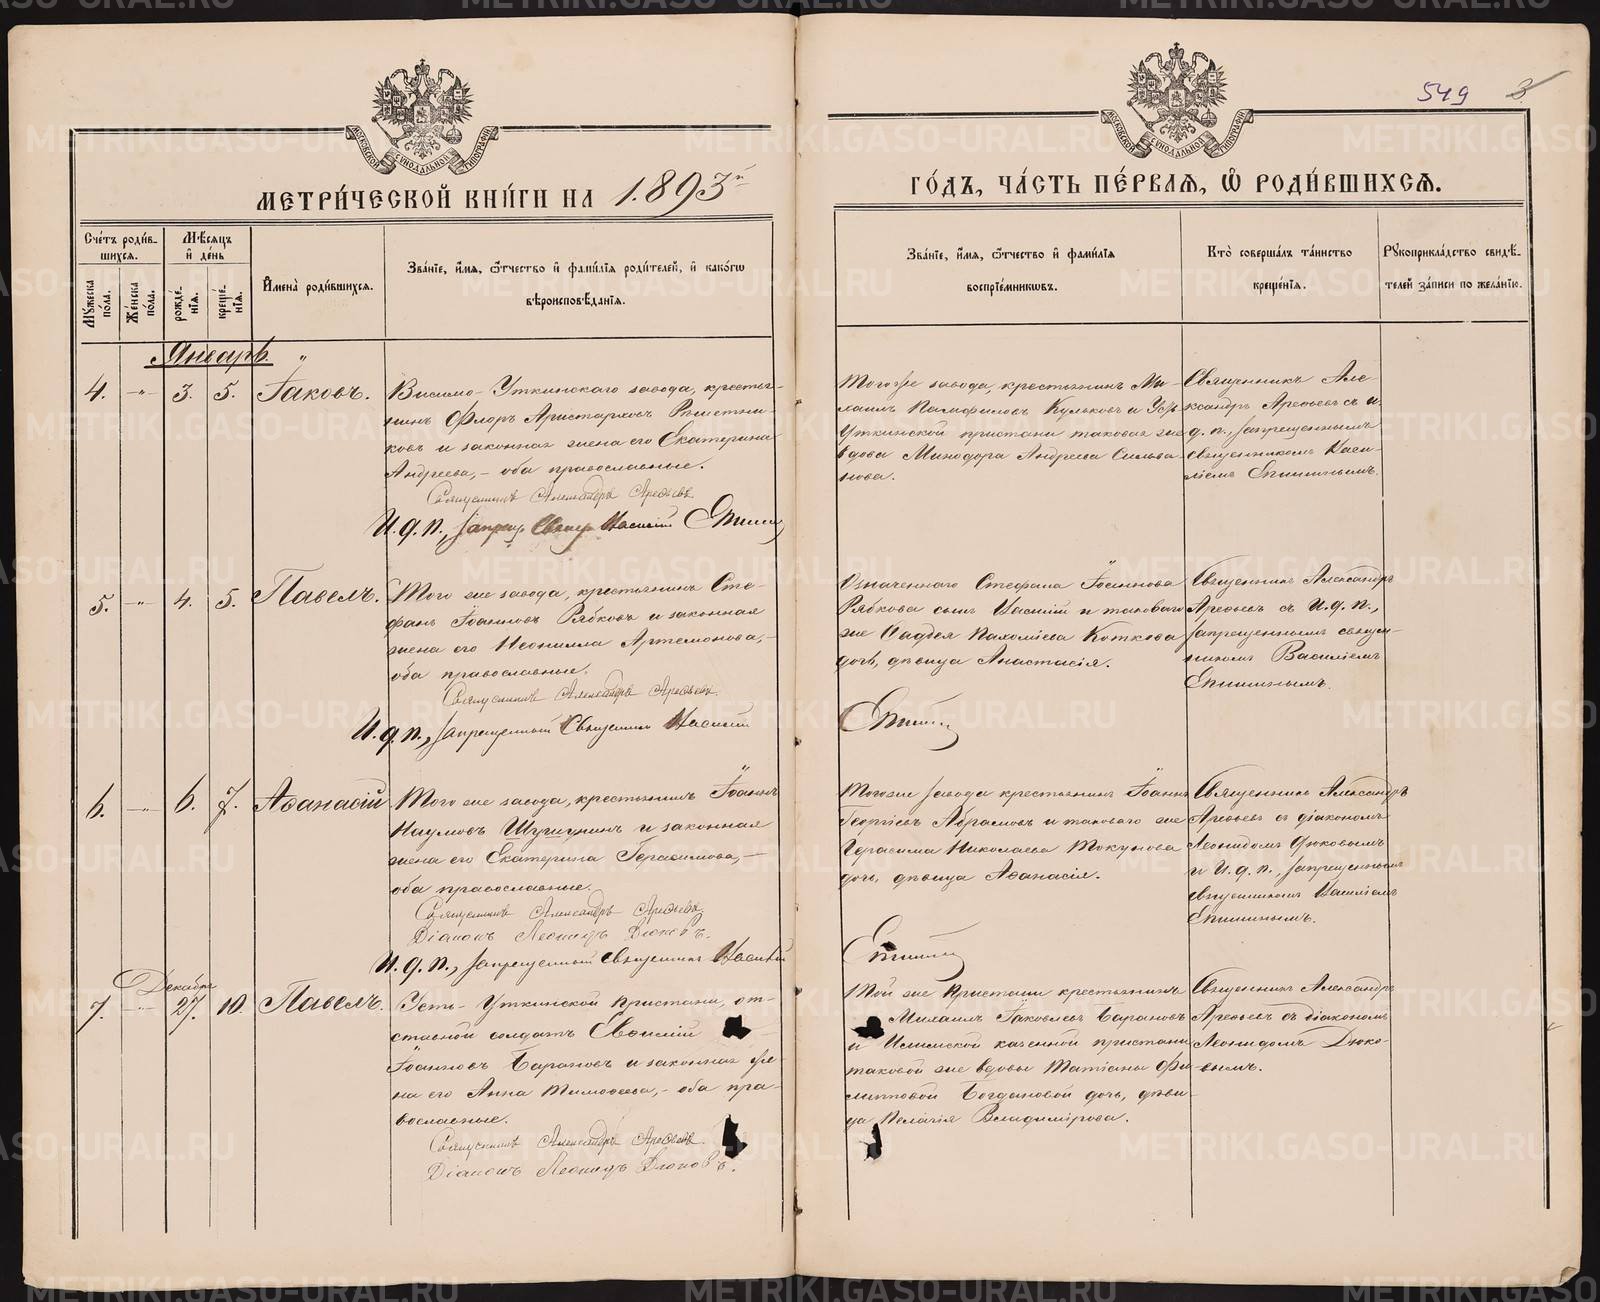 549 3
МОСКОВСКОЙ СИНОДАЛЬНОЙ ТИПОГРАФІИ
МОСКОВСКОЙ СИНОДАЛЬНОЙ ТИПОГРАФІИ
МЕТРИ́ЧЕСКОЙ КНИ́ГИ НА 1893й
ГО́ДЪ, ЧА́СТЬ ПЕ́РВАЯ, Ѿ РОДИ́ВШИХСЯ.
Сче́тъ роди́в-
шихся.
Мꙋ́жеска пола.
Же́нска пола.
Мѣ́сяцъ
и҆ де́нь
рожде́-
нія.
креще́-
нія.
И҆мена̀ роди́вшихся.
Зва́ніе, и҆́мя, ѻ҆́тчество и҆ фами́лія роди́телей, и҆ како́гѡ
вѣроисповѣ́данія.
Зва́ніе, и҆́мя, ѻ҆́тчество и҆ фами́лія
воспріе́мниковъ.
Кто̀ соверша́лъ та́инство
креще́нія.
Рꙋкоприкла́дство свидѣ́-
телей за́писи по жела́нію.
Январь. "
4. -"- 3. 5. Іаковъ.
Висимо-Уткинскаго завода, крестья-
нинъ Флоръ Аристарховъ Решетни-
ковъ и законная жена его Екатерина
Андреева, - оба православные.
Священникъ Александръ Арефьевъ
И. д. п., запрещ. Священ. Василій Епишин
Тогоже завода, крестьянинъ Ми-
хаилъ Памфиловъ Кульковъ и Усть
Уткинской пристани таковая же
вдова Минодора Андреева Силива-
нова.
Священникъ Але-
ксандръ Арефьевъ съ и.
д. п., запрещеннымъ
священникомъ Васи-
ліемъ Епишинымъ.
5. -"- 4. 5. Павелъ.
Того же завода, крестьянинъ Сте-
фанъ Іоанновъ Рябковъ и законная
жена его Неонилла Артемонова, -
оба православные.
Священникъ Александръ Арефьевъ
И. д. п., запрещенный Священникъ Василій
Означеннаго Стефана Іоаннова
Рябкова сынъ Василій и таковаго
же Фаддея Пахоміева Коткова
дочь, дѣвица Анастасія.
Епишин
Священникъ Александръ
Арефьевъ съ И. д. п.,
запрещеннымъ священ-
никомъ Василіемъ
Епишинымъ.
6. -"- 6. 7. Аѳанасій
Того же завода, крестьянинъ Іоаннъ
Наумовъ и законная
жена его Екатерина Герасимова, -
оба православные.
Священникъ Александръ Арефьевъ
Діаконъ Леонидъ Дюковъ.
И. д. п., запрещенный священникъ Василій
Тогоже завода крестьянинъ Іоаннъ
Георгіевъ Абрамовъ и таковаго же
Герасима Николаева Токунова
дочь, дѣвица Аѳанасія.
Епишин
Священникъ Александръ
Арефьевъ съ діакономъ
Леонидомъ Дюковымъ
и И. д. п., запрещеннымъ
священникомъ Василіемъ
Епишинымъ.
Декабря
7. -"- 27. 10. Павелъ.
Усть-Уткинской пристани, от-
ставной солдатъ Евѳимій
Іоанновъ Барановъ и законная же-
на его Анна Тимоѳеева, - оба пра-
вославные.
Священникъ Александръ Арефьевъ.
Діаконъ Леонидъ Дюковъ.
Той же пристани крестьянинъ
Михаилъ Іаковлевъ Барановъ
и Илимской казенной пристани
таковой же вдовы Матіаны Фи-
липповой Богдановой дочь, дѣви-
ца Пелагія Владимірова.
Священникъ Александръ
Арефьевъ съ діакономъ
Леонидомъ Дюко-
вымъ.
METRIKI.GASO-URAL.RU